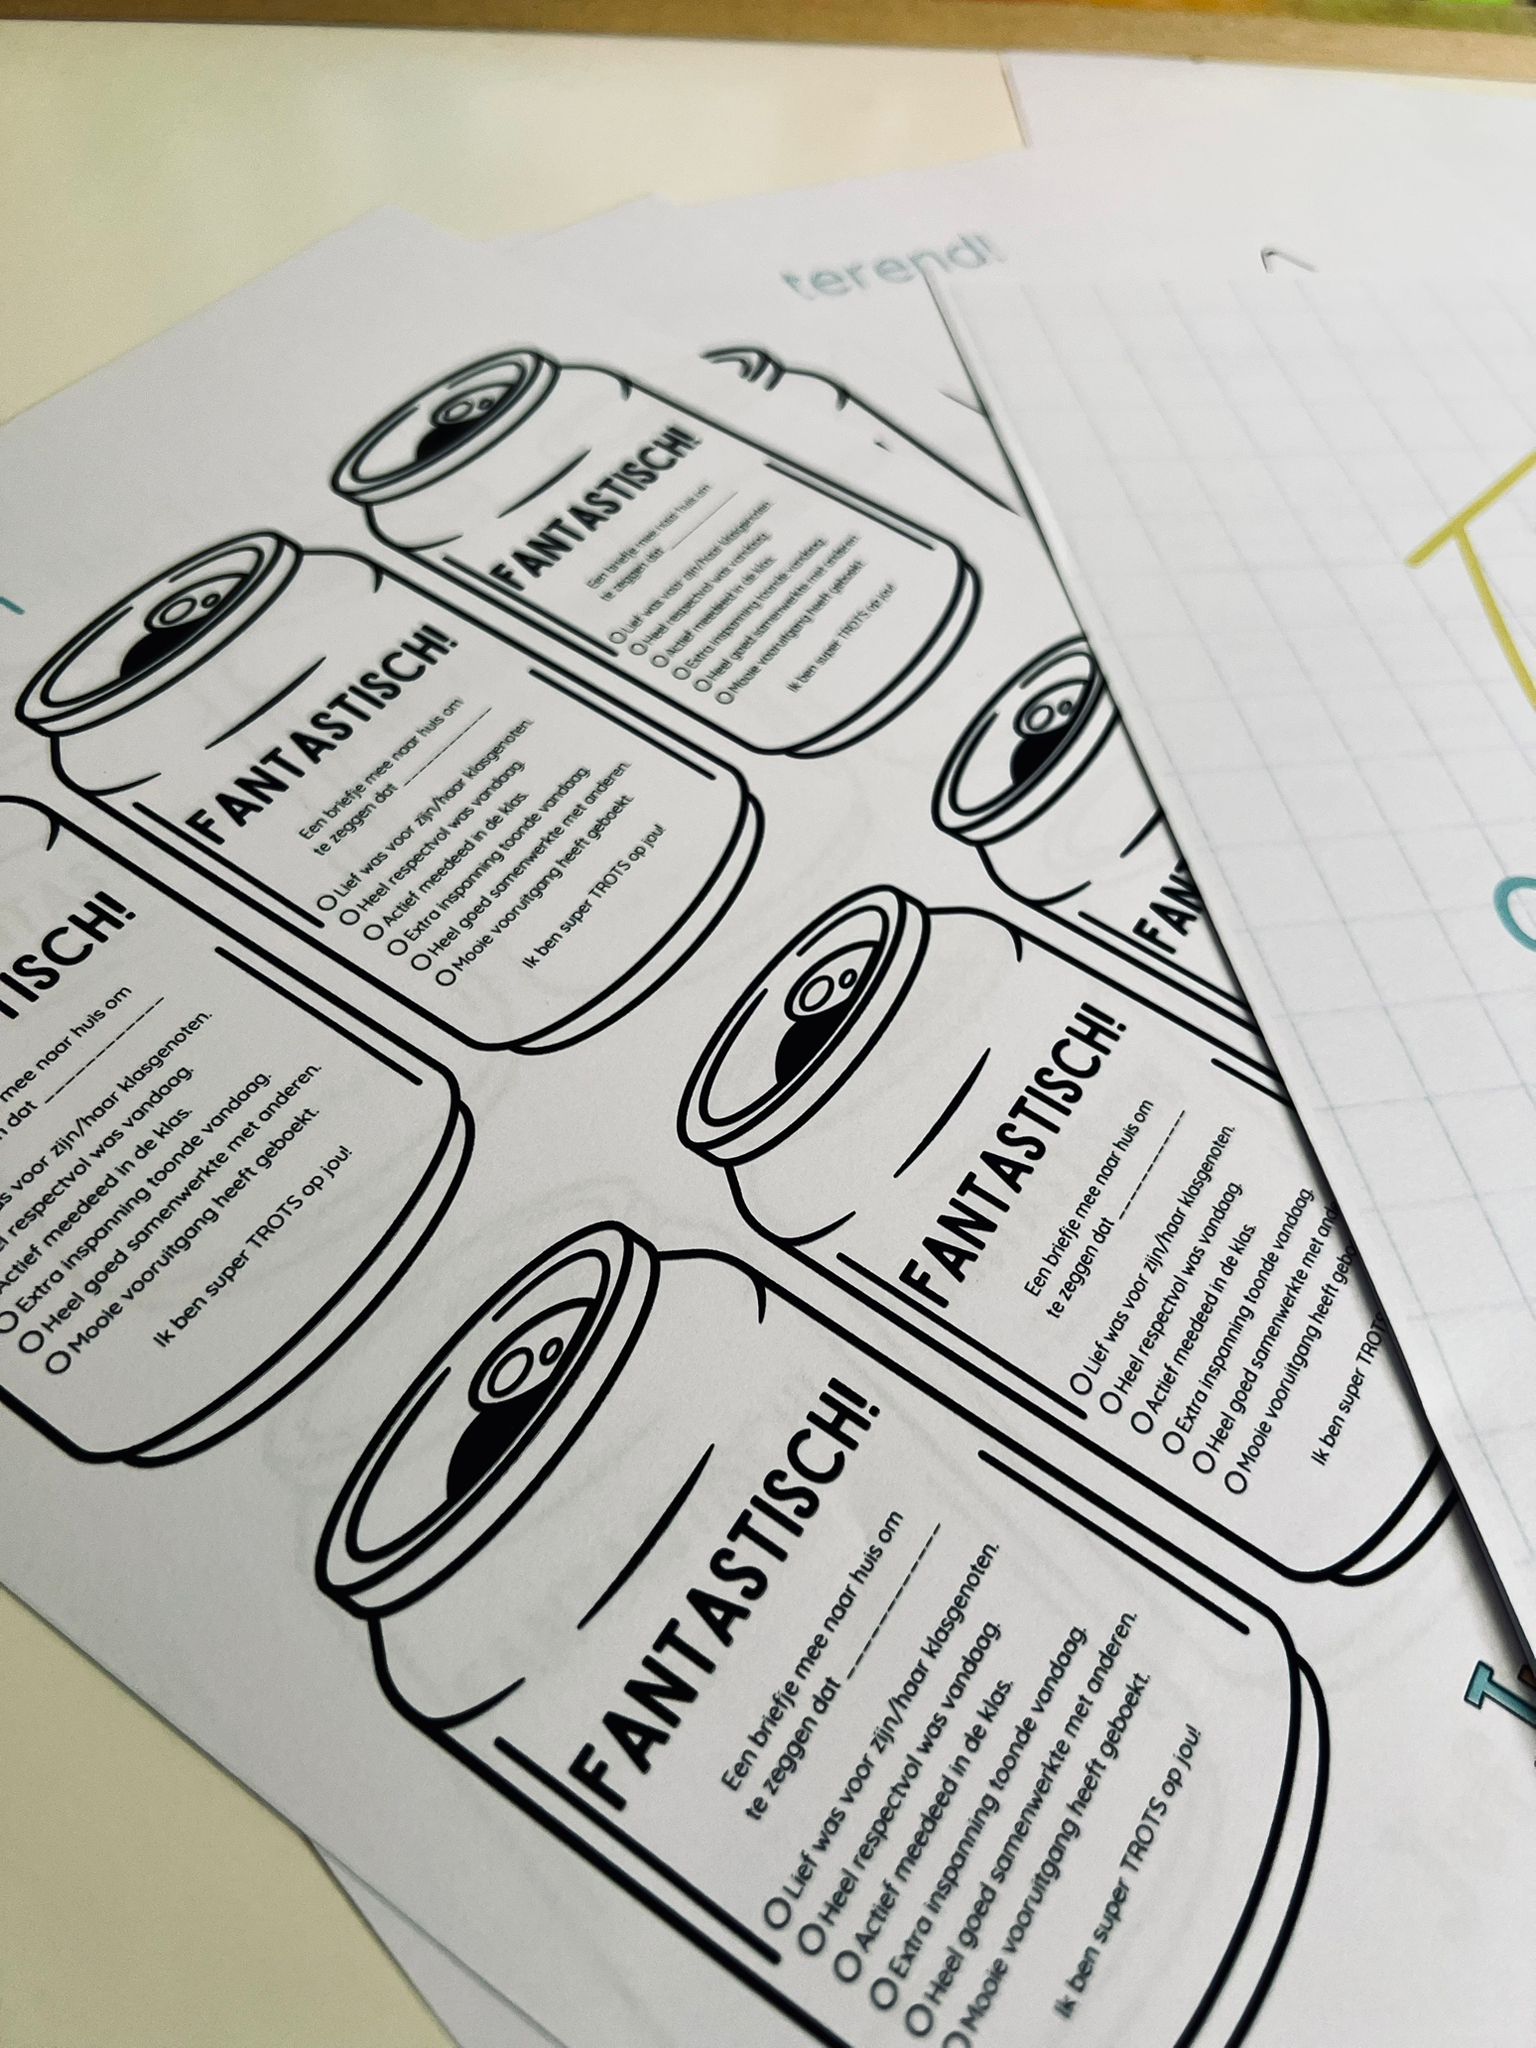 terend!
FANTASTISCH!
Een briefje mee naar huis om
te zeggen dat __________
Lief was voor zijn/haar klasgenoten.
Heel respectvol was vandaag.
Actief meedeed in de klas.
Extra inspanning toonde vandaag.
Heel goed samenwerkte met anderen.
Mooie vooruitgang heeft geboekt.
Ik ben super TROTS op jou!
FANTASTISCH!
Een briefje mee naar huis om
te zeggen dat __________
Lief was voor zijn/haar klasgenoten.
Heel respectvol was vandaag.
Actief meedeed in de klas.
Extra inspanning toonde vandaag.
Heel goed samenwerkte met anderen.
Mooie vooruitgang heeft geboekt.
Ik ben super TROTS op jou!
TISCH!
mee naar huis om
dat __________
voor zijn/haar klasgenoten.
respectvol was vandaag.
Actief meedeed in de klas.
Extra inspanning toonde vandaag.
Heel goed samenwerkte met anderen.
Mooie vooruitgang heeft geboekt.
Ik ben super TROTS op jou!
FAN
FANTASTISCH!
Een briefje mee naar huis om
te zeggen dat __________
Lief was voor zijn/haar klasgenoten.
Heel respectvol was vandaag.
Actief meedeed in de klas.
Extra inspanning toonde vandaag.
Heel goed samenwerkte met and
Mooie vooruitgang heeft gebo
Ik ben super TROTS
FANTASTISCH!
Een briefje mee naar huis om
te zeggen dat __________
Lief was voor zijn/haar klasgenoten.
Heel respectvol was vandaag.
Actief meedeed in de klas.
Extra inspanning toonde vandaag.
Heel goed samenwerkte met anderen.
Mooie vooruitgang heeft geboekt.
Ik ben super TROTS op jou!